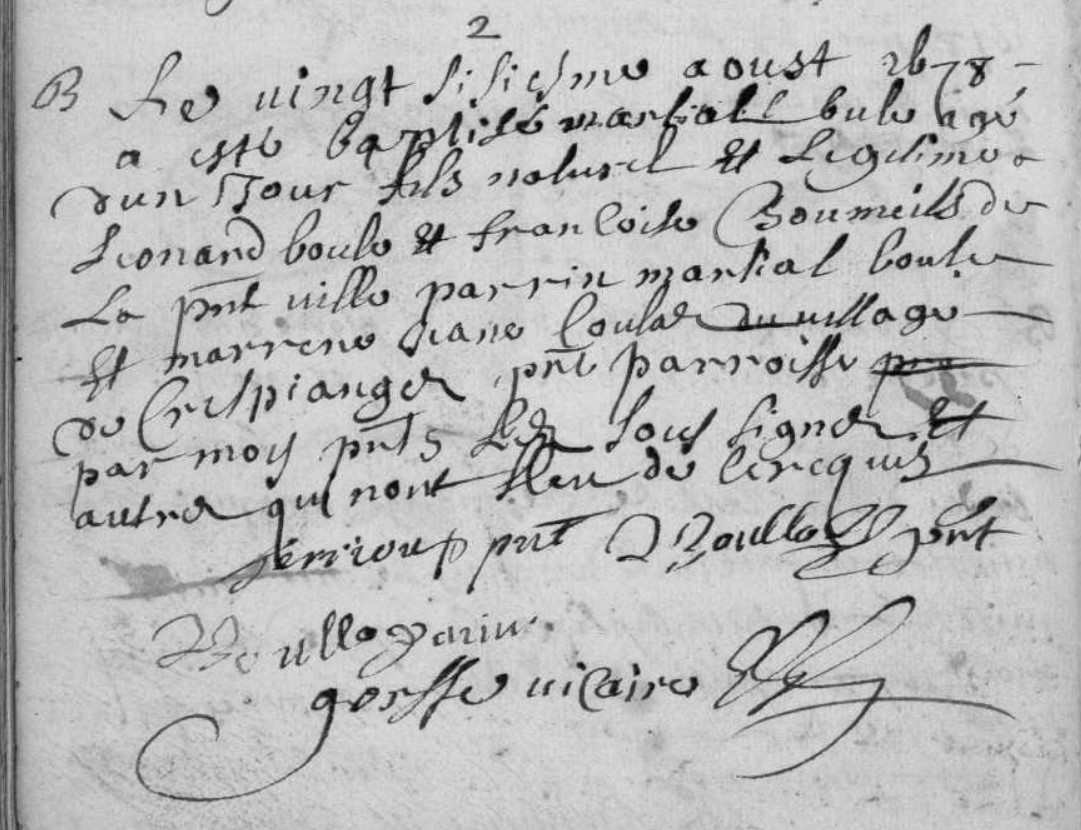 2
B Le vingt sisiesme aoust 1678
a esté baptisé martiall boule agé
dun Jour fils naturel et Legitime a
Leonard boule et francoise Boumeils de
La pnt ville parrin martial boule
Et marrene Jane Coulad du village
de Crespianges pnt parroisse
par moy pnts Les sous signes Et
autres qui nont sceu de ce recquis
pnt Boulle pnt
Boulle parin
gorsse vicaire